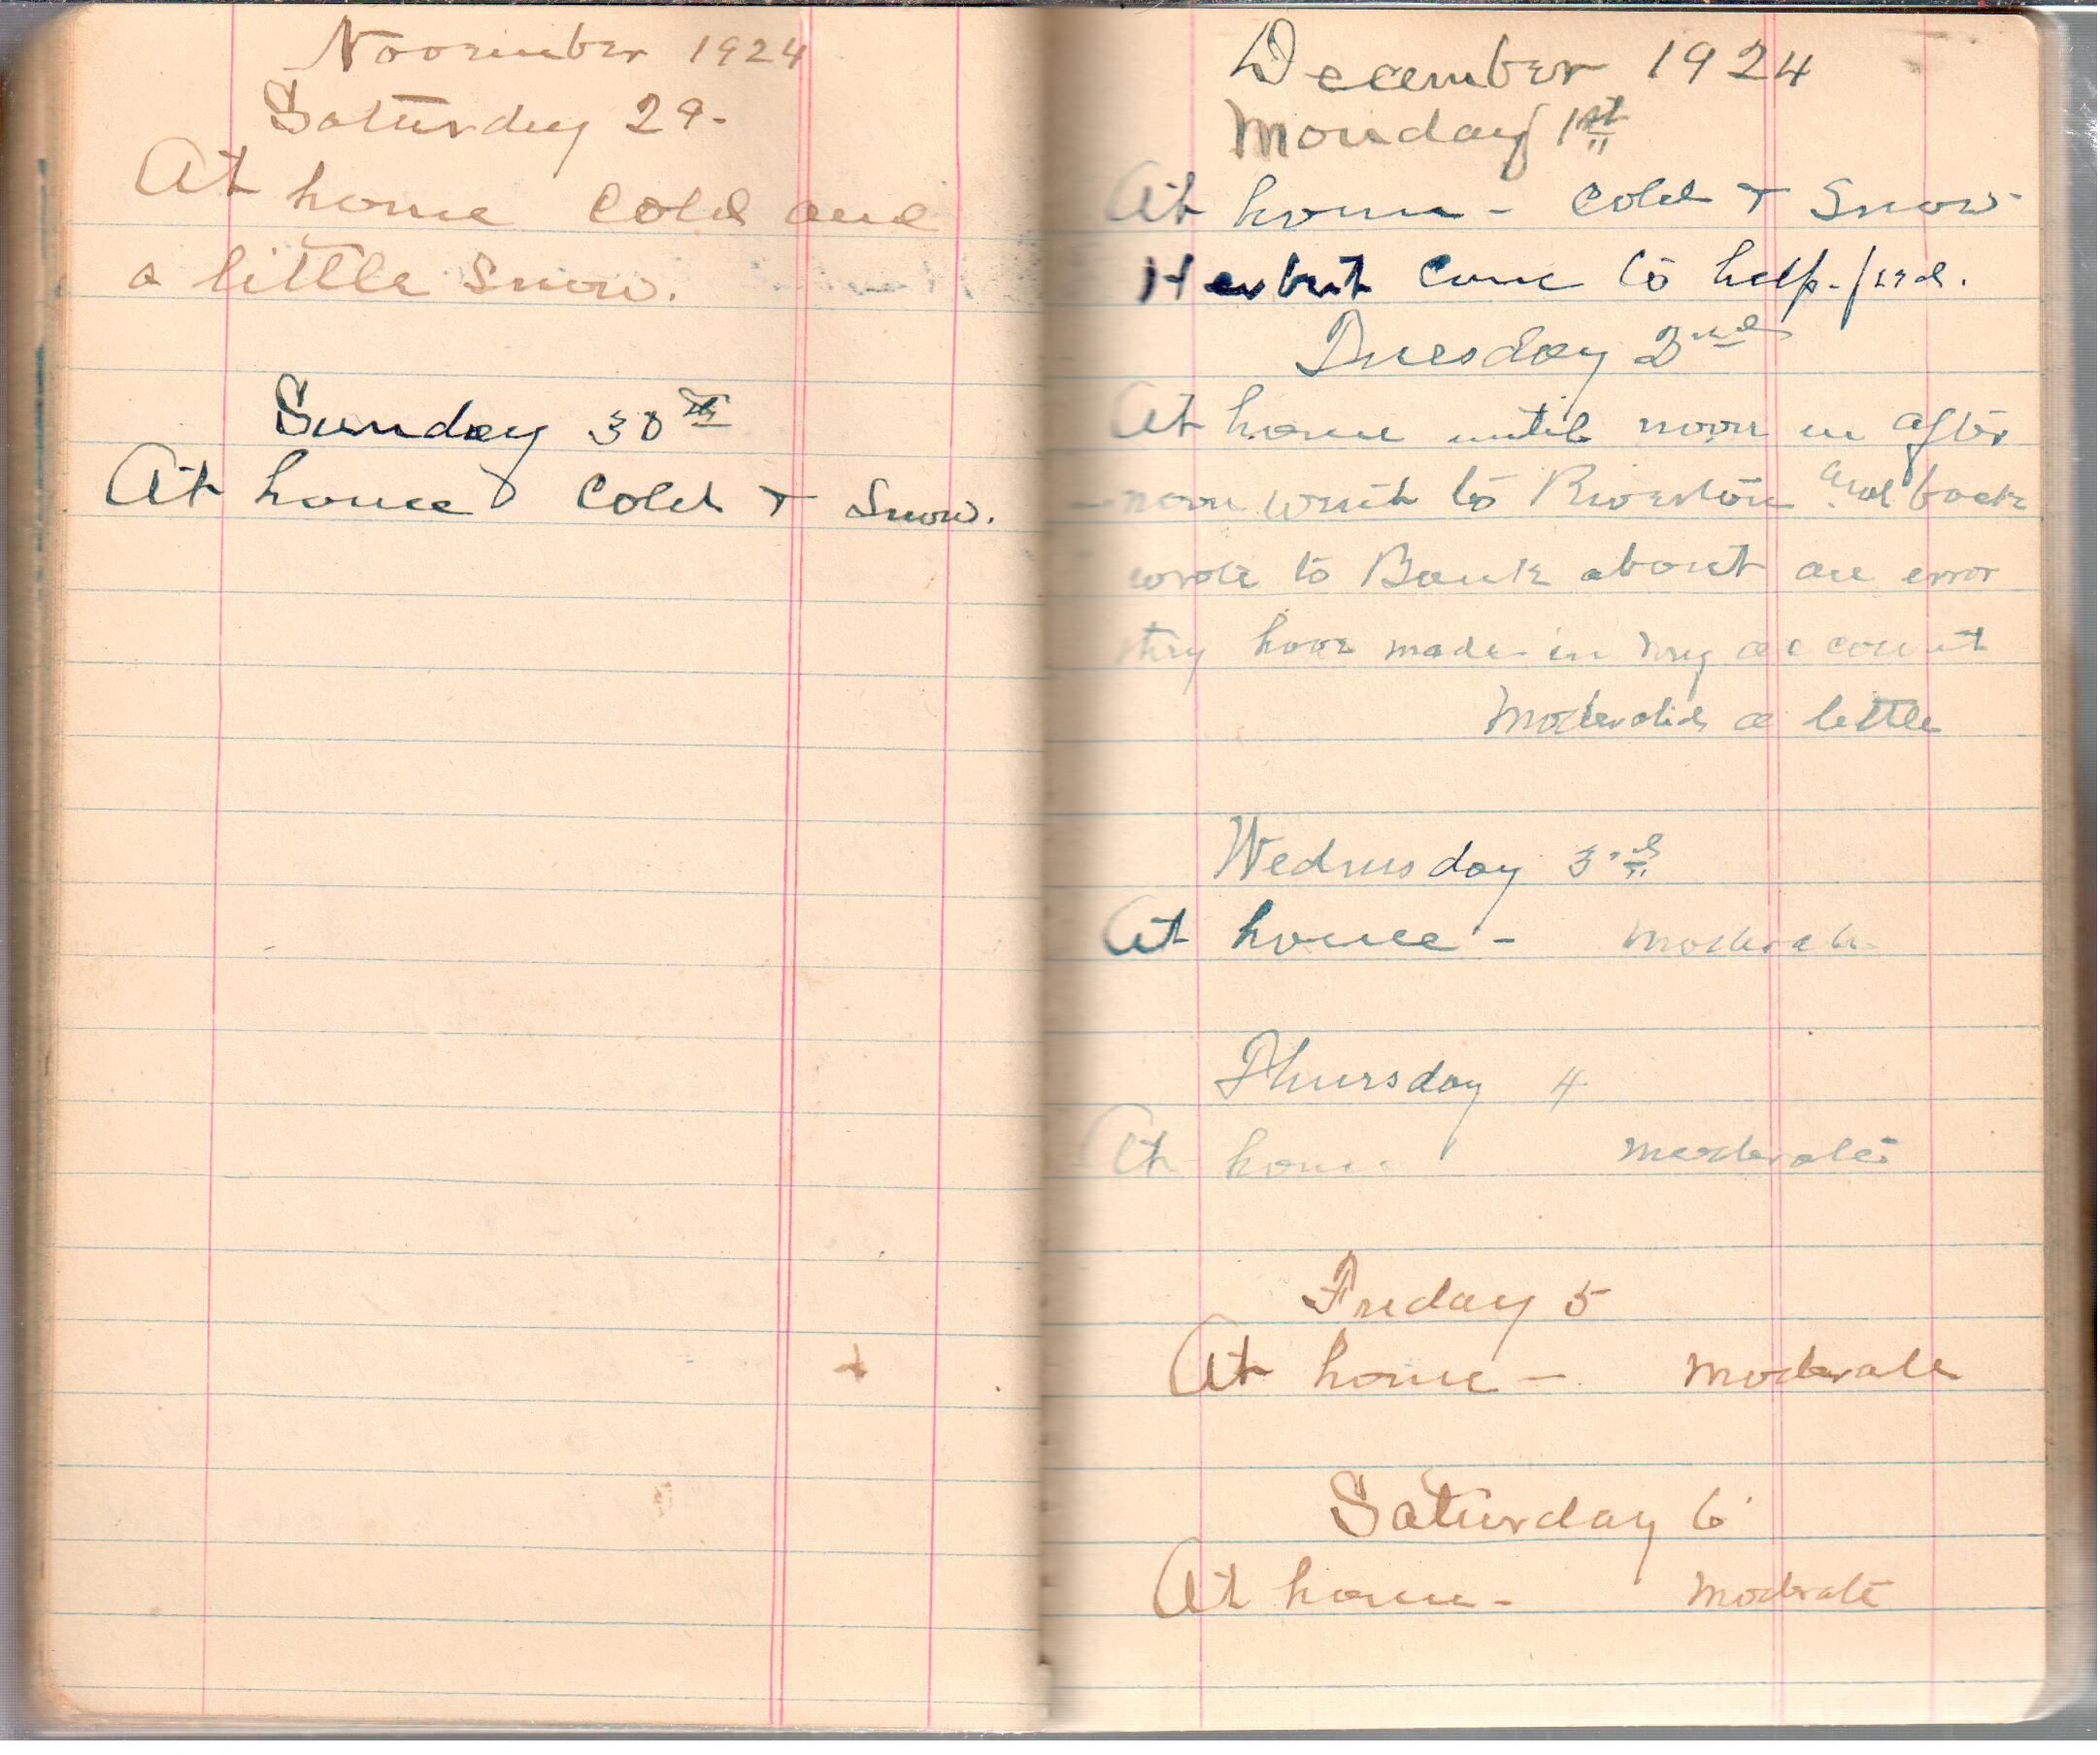 November 1924
Saturday 29.
At home Cold and
a little Snow.
Sunday 30th
At home Cold + Snow.
December 1924
Monday 1st
At home - Cold + Snow
Herbert Come to help feed.
Tuesday 2nd
At home until noon in after
- noon went to Riverton and back
wrote to Bank about an error
they have made in my account
Moderated a little
Wednesday 3rd
At home - moderate
Thursday 4
At home moderate
Friday 5
At home - moderate
Saturday 6
At home - moderate